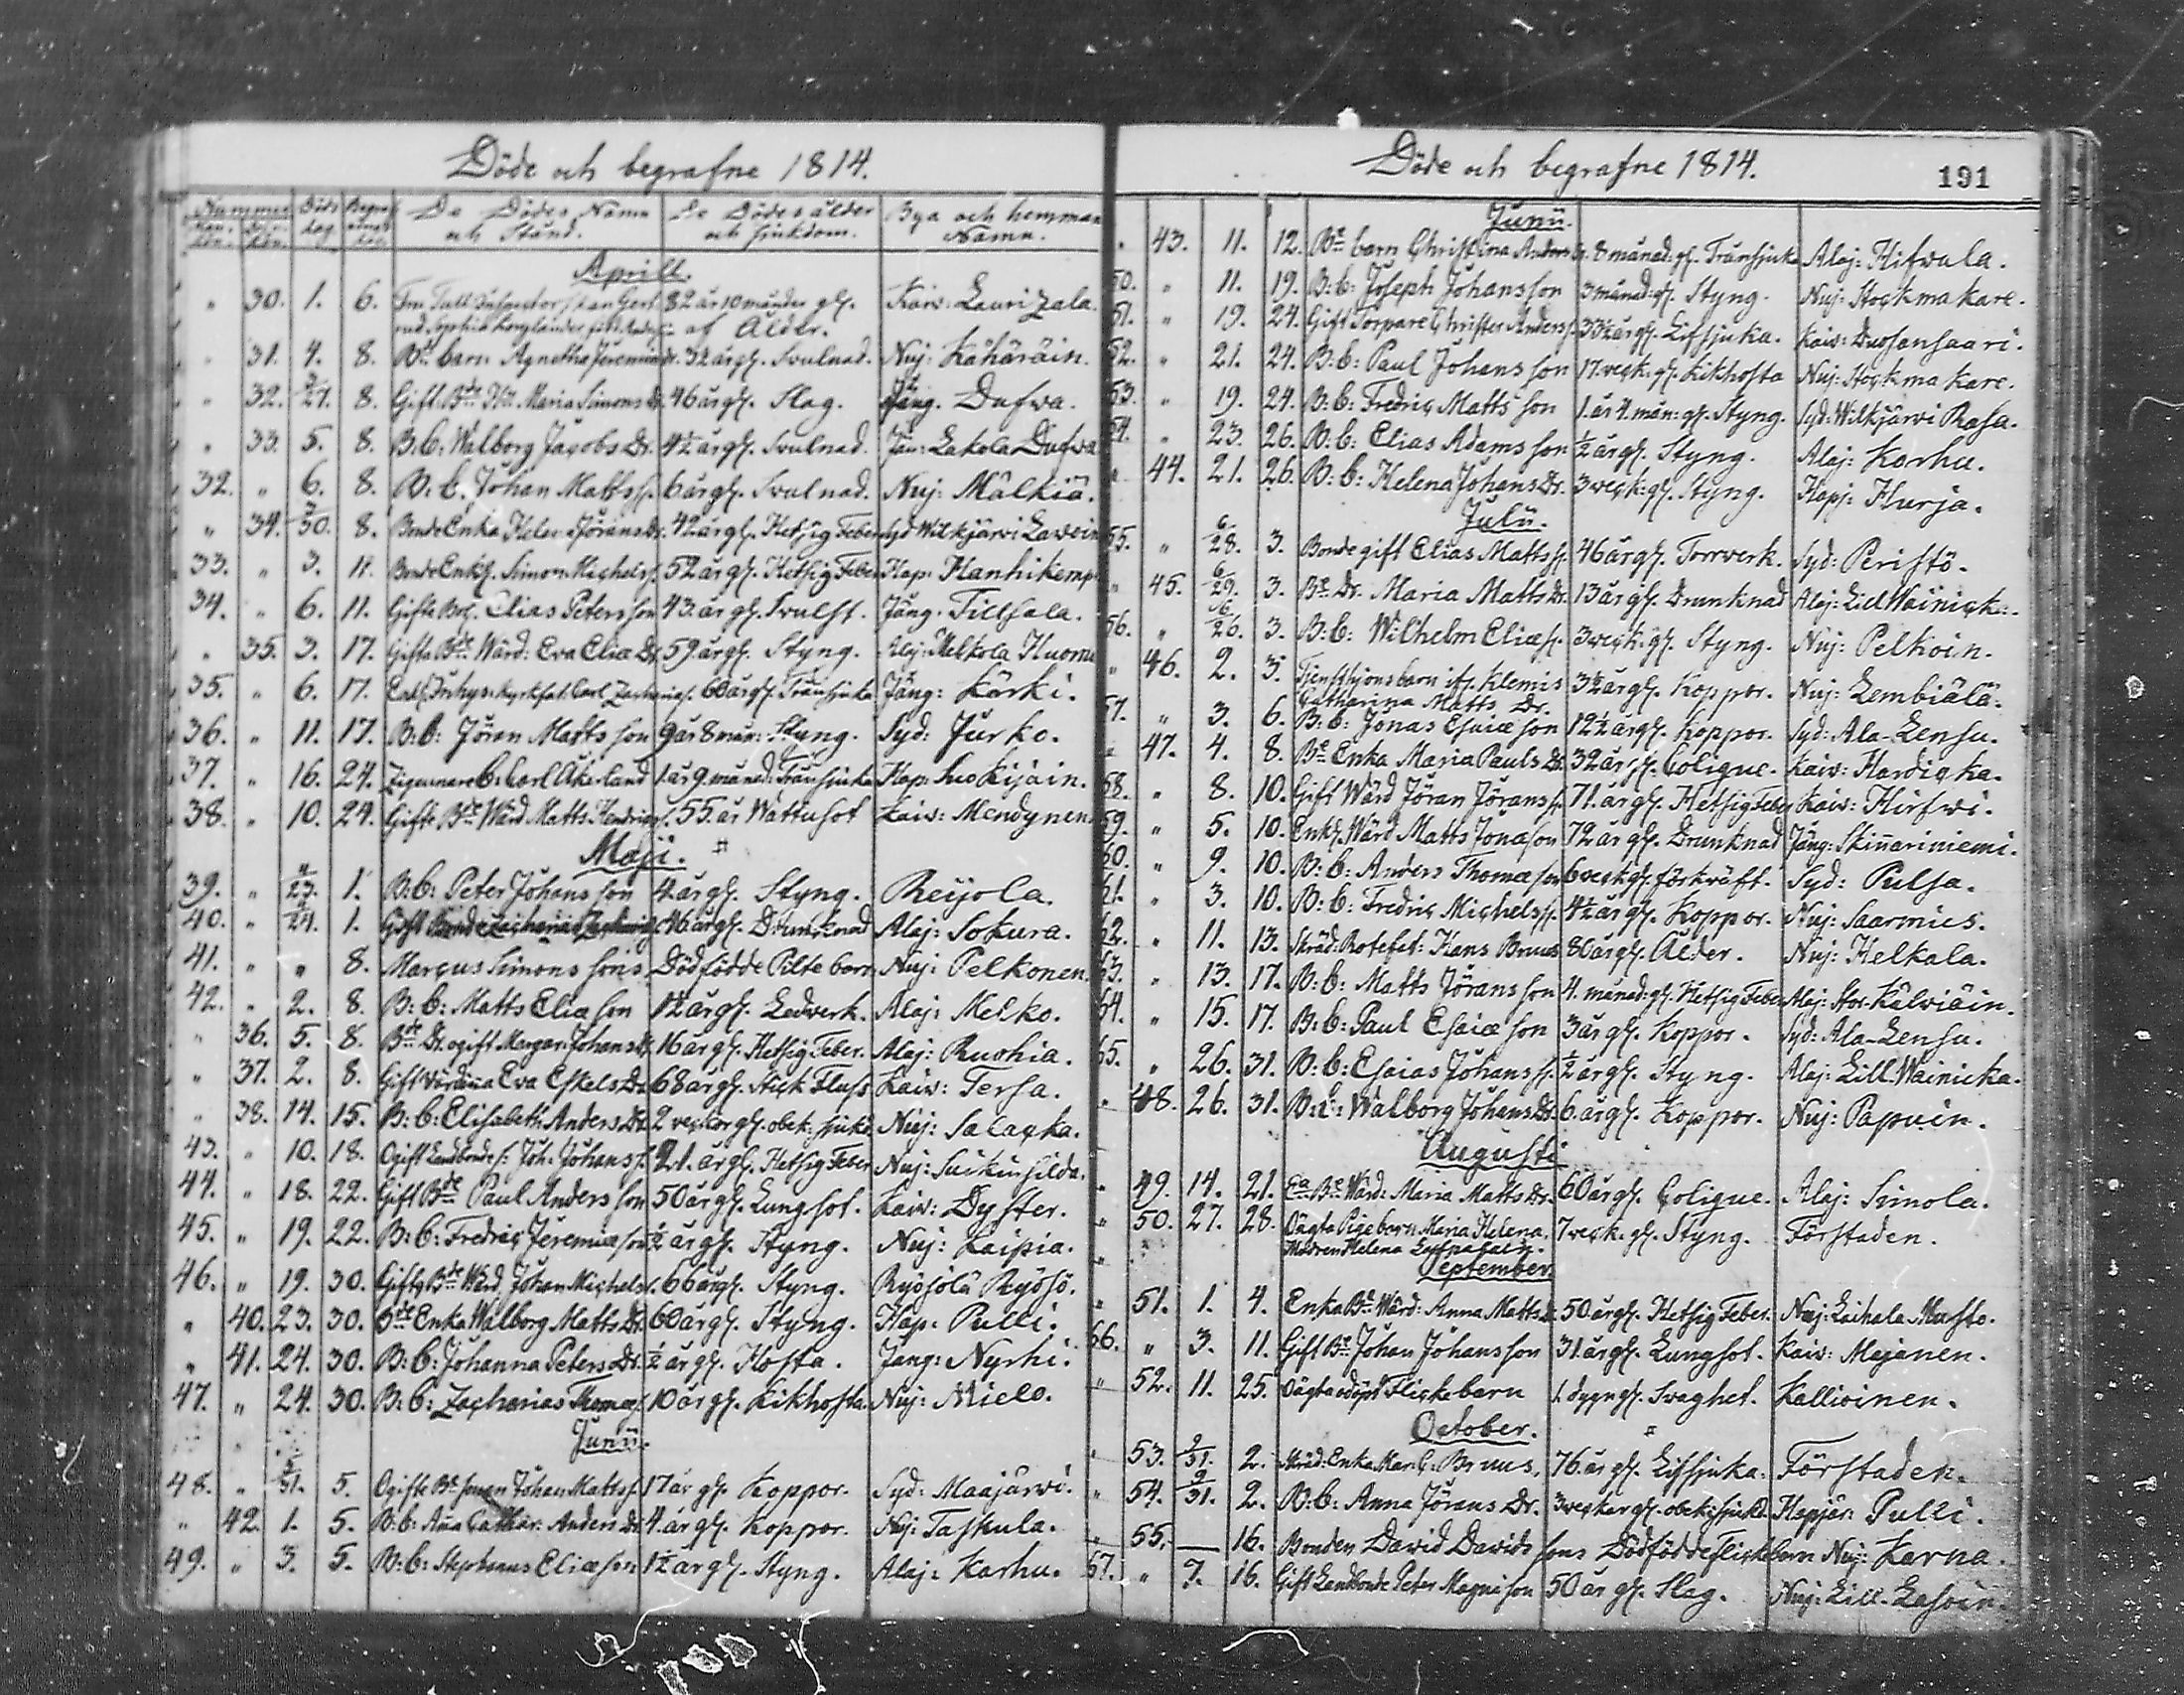 Döde och begrafne 1814.
Nummer Döds Begraf De Dödes Namn De Dödes ålder Bya och hemman
dag och Stånd. och siukdom. Namn.
Aprill.
" 30. 1. 6. 82 år 10 månder gl. Kaiv: Laurizala.
af Ålder.
" 31. 4. 8. Bde barn Agnetha Jeremiæ Dr. 3½ år gl. Svulnad. Nuj: Kähäräin.
" 32. 3/27. 8. Gift Bde Maria Simons Dr. 46 år gl. Slag. Jäng. Dufwa.
" 33. 5. 8. B: b: Walborg Jacobs Dr. 4½ år gl. Svulnad. Jän: Lakola Dufva
32. " 6. 8. B: b: Johan Mattss. 6 år gl. Svulnad. Nuj: Mälkiä.
" 34. 3/30. 8. Bonde Enka Helen. Jörans Dr. 42 år gl. Hetsig Feber Syd Wilkjärvi
33. " 3. 11. Bonde Enkl. Simon Michelss. 52 år gl. Hetsig Feber Hap: Hanhikemp
34. " 6. 11. Gifte Elias Petersson 43. år gl. Svulst. Jäng. Tillsala.
" 35. 3. 17. Gifta Bde Wärd: Eva Eliæ Dr. 59 år gl. Styng. Alaj: Melkola Huomo
35. " 6. 17. Carl Zacharias. 60 år gl. Trånsjuka Jäng: Kärki.
36. " 11. 17. B: b: Jöran Matts son 9 år 8 mån: Styng. Syd: Jurko.
37. " 16. 24. Zigennare b: Carl Åkerland 1 år 9. månad: Trånsjuka Hap:
38. " 10. 24. Gifte Bde Wärd Matts Hendrics. 55. år Wattusot Kaiv: Mendynen
Maji.
39. " 4/23. 1. B: b: Peter Johans son 4. år gl. Styng. Reijola.
40. " 4/24. 1. Gift Bonde Zacharias Zacharias 46 år gl. Drunknad Alaj: Sokura.
41. " " 8. Marcus Simons sons Dödfödde Pilte barn Nuj: Pelkonen.
42. " 2. 8. B: b: Matts Eliæ son 1½ år gl. Ledverk. Alaj: Melko.
" 36. 5. 8. Bde Dr. ogift Margar: Johans Dr. 16 år gl. Hetsig Feber. Alaj: Ruohia.
" 37. 2. 8. Gift Värdiña Eva Eskels Dr. 68 år gl. Stick Fluss Kaiv: Tersa.
" 38. 14. 15. B: b: Elisabeth Anders Dr. 2 veckor gl. obek: sjukd. Nuj: Salacka.
43. " 10. 18. Ogift Landbonde s: Joh: Johans s. 21. år gl. Hetsig Feber Nuj: Suikinsilda.
44. " 18. 22. Gift Bde Paul Anders son 50 år gl. Lungsot. Kaiv: Dyster.
45. " 19. 22. B: b: Fredric Jeremiæ son ½ år gl. Styng. Nuj: Kaipia.
46. " 19. 30. Gifte Bde Wärd Johan Michels s. 66 år gl. Styng. Ryösölä Ryösö.
" 40. 23. 30. Bde Enka Walborg Matts Dr. 60 år gl. Styng. Hap: Pulli.
" 41. 24. 30. B: b: Johanna Peters Dr. ½ år gl. Hosta. Jäng: Nyrhi.
47. " 24. 30. B: b: Zacharias Thomæ s. 10 år gl. Kikhosta. Nuj: Mielo.
Junii.
48. " 5/31. 5. Ogifte Bde sonen Johan Matts s. 17 år gl. Koppor. Syd: Maajärvi.
" 42. 1. 5. B: b: Aña Cathar: Anders Dr. 4. år gl. Koppor. Nuj: Taskula.
49. " 3. 5. B: b: Stephanus Eliæ son 1½ år gl. Styng. Alaj: Karhu.
Döde och begrafne 1814. 191
Junii.
" 43. 11. 12. Bde barn Christina Anders Dr. 8 månad: gl. Trånsjuka Alaj: Hifwala.
50. " 11. 19. B: b: Joseph Johansson 3 månad: gl. Styng. Nuj: Stockmakare.
51. " 19. 24. Gift Torpare Christer Anders s. 33½ år gl. Lifsjuka. Kaiv: Duosansaari.
52. " 21. 24. B: b: Paul Johans son 17. veck: gl. Kikhosta Nuj: Stockmakare.
53. " 19. 24. B: b: Fredric Matts son 1. år 4. mån: gl. Styng. Syd: Wilkjärvi Rasa.
54. " 23. 26. B: b: Elias Adams son ½ år gl. Styng. Alaj: Karhu.
" 44. 21. 26. B: b: Helena Johans Dr. 3 veck: gl. Styng. Hapj: Hurja.
Julii.
55. " 6/28. 3. Bonde gift Elias Matts s. 46 år gl. Torrverk. Syd: Peristö.
" 45. 6/29. 3. Bde Dr. Maria Matts Dr. 13 år gl. Drunknad Alaj: Lill Wainicka.
56. " 6/26. 3. B: b: Wilhelm Eliæ s. 3 veck: gl. Styng. Nuj: Pelkoin.
" 46. 2. 3. Tjensthjons barn ifr. Klemis 3½ år gl. Koppor. Nuj: Lembiälä.
Catharina Matts Dr.
57. " 3. 6. B: b: Jonas Esaiæ son 12½ år gl. Koppor. Syd: Ala-Lensu.
" 47. 4. 8. Bde Enka Maria Pauls Dr. 32 år gl. Colique. Kaiv: Hardicka.
58. " 8. 10. Gift Wärd Jöran Jörans s. 71. år gl. Hetsig Feber Kaiv: Hirfwi.
59. " 5. 10. Enkl. Wärd Matts Jonæ son 72 år gl. Drunknad Jäng: Skiñariniemi.
60. " 9. 10. B: b: Anders Thomæ son 6 veck gl. förkräft. Syd: Pulsa.
61. " 3. 10. B: b: Fredric Michels s. 4½ år gl. Koppor. Nuj: Saarmies.
62. " 11. 13. Skräd: Rotefat: Hans Bruus 80 år gl. Ålder. Nuj: Helkala.
63. " 13. 17. B: b: Matts Jörans son 4. månad: gl. Hetsig Feber Alaj: Stor-Kälviäin.
64. " 15. 17. B: b: Paul Esaiæ son 3 år gl. Koppor. Syd: Ala-Lensu.
65. " 26. 31. B: b: Esaias Johans s. ½ år gl. Styng. Alaj: Lill-Wainicka.
" 48. 26. 31. B: b: Walborg Johans Dr. 6. år gl. Koppor. Nuj: Papuin.
Augusti
" 49. 14. 21. Ea Bde Wärd: Maria Matts Dr. 60 år gl. Colique. Alaj: Simola.
" 50. 27. 28. Oägta Pigebarn Maria Helena. 7 veck: gl. Styng. Förstaden.
Modren Helena
September.
" 51. 1. 4. Enka Bde Wärd: Anna Matts Dr. 50 år gl. Hetsig Feber. Nuj: Laihala Musto.
66. " 3. 11. Gift Bde Johan Johansson 31. år gl. Lungsot. Kaiv: Majanen.
" 52. 11. 25. Oägta odöpt Flickebarn 1. dygn gl. Svaghet. Kallioinen.
October.
" 53. 9/31. 2. Skräd: Enka Mar: C: Bruus. 76. år gl. Lifsjuka. Förstaden.
" 54. 9/31. 2. B: b: Anna Jörans Dr. 3 veckor gl. obek: sjukd. Hapjär: Pulli.
" 55. — 16. Bonden David Davids sons Dödfödde Flickbarn Nuj: Karna.
67. " 7. 16. Gift Landbonde Peter Magni son 50 år gl. Slag. Nuj: Lill-Lasoin.